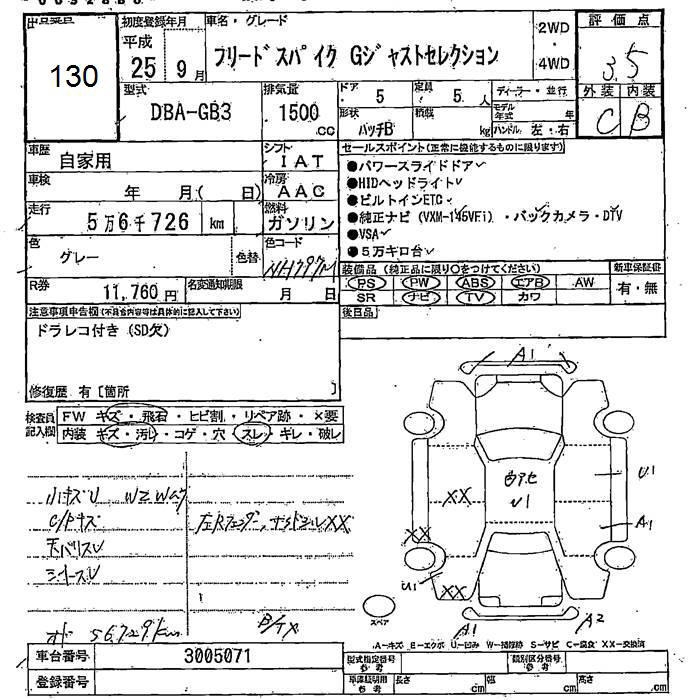 出品番号 初度登録年月 車名・グレード 2WD・4WD 評価点
130
平成 25 9月 フリードスパイク Gジャストセレクション 3.5
型式 排気量 ドア 5 定員 5人 ディーラー・並行 外装 内装
DBA-GB3 1500 cc 形状 ハッチB 積載 kg モデル年式 年 ハンドル 左・右 C B
車歴 自家用 シフト IAT セールスポイント(正常に機能するものに限ります)
●パワースライドドア
車検 年 月( 日) 冷房 AAC
●HIDヘッドライト
●ビルトインETC
走行 5万6千726 km 燃料 ガソリン
●純正ナビ(VXM-145VFi)・バックカメラ・DTV
●VSA
色 グレー 色替 色コード NH797M
●5万キロ台
装備品(純正品に限り○をつけてください) 新車保証書
R券 11,760円 名変通知期限 月 日
PS PW ABS エアB AW 有・無
SR ナビ TV カワ
注意事項申告欄(不具合内容等は具体的に記入して下さい) 後日品
ドラレコ付き(SD欠)
修復歴 有〔箇所 〕
検査員記入欄 FW キズ・飛石・ヒビ割・リペア跡・×要
内装 キズ・汚レ・コゲ・穴・スレ・キレ・破レ
A1
小キズU W2 Wスレ
C/Pキズ 左Rフェンダー,サイドシルXX
天バリスレ
シートスU
XX XX XX
U1 U1 A1
A1 A2
オド 56729km
スペア
A-キズ E-エクボ U-凹み W-補修跡 S-サビ C-腐食 XX-交換済
車台番号 3005071 型式指定番号参考 類別区分番号参考
登録番号 車庫証明用参考 長さ cm 幅 cm 高さ cm